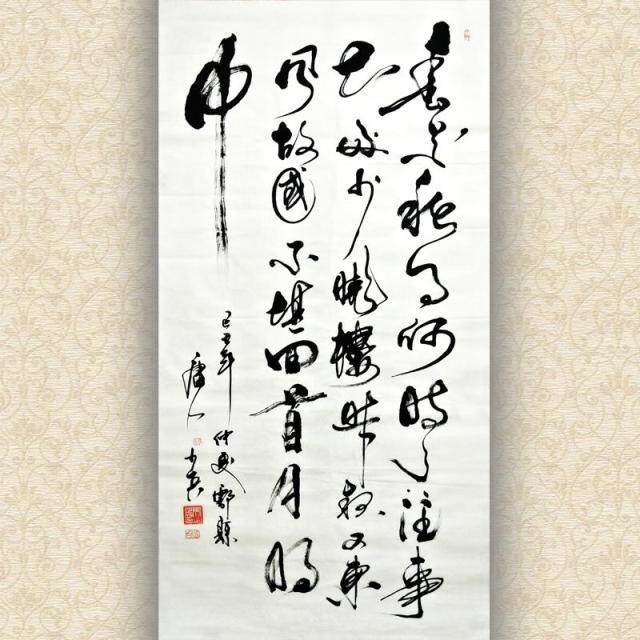 春花秋月何時了往事
知多少樓昨夜又東
風故國不堪回首月明
中
己丑年
仲夏